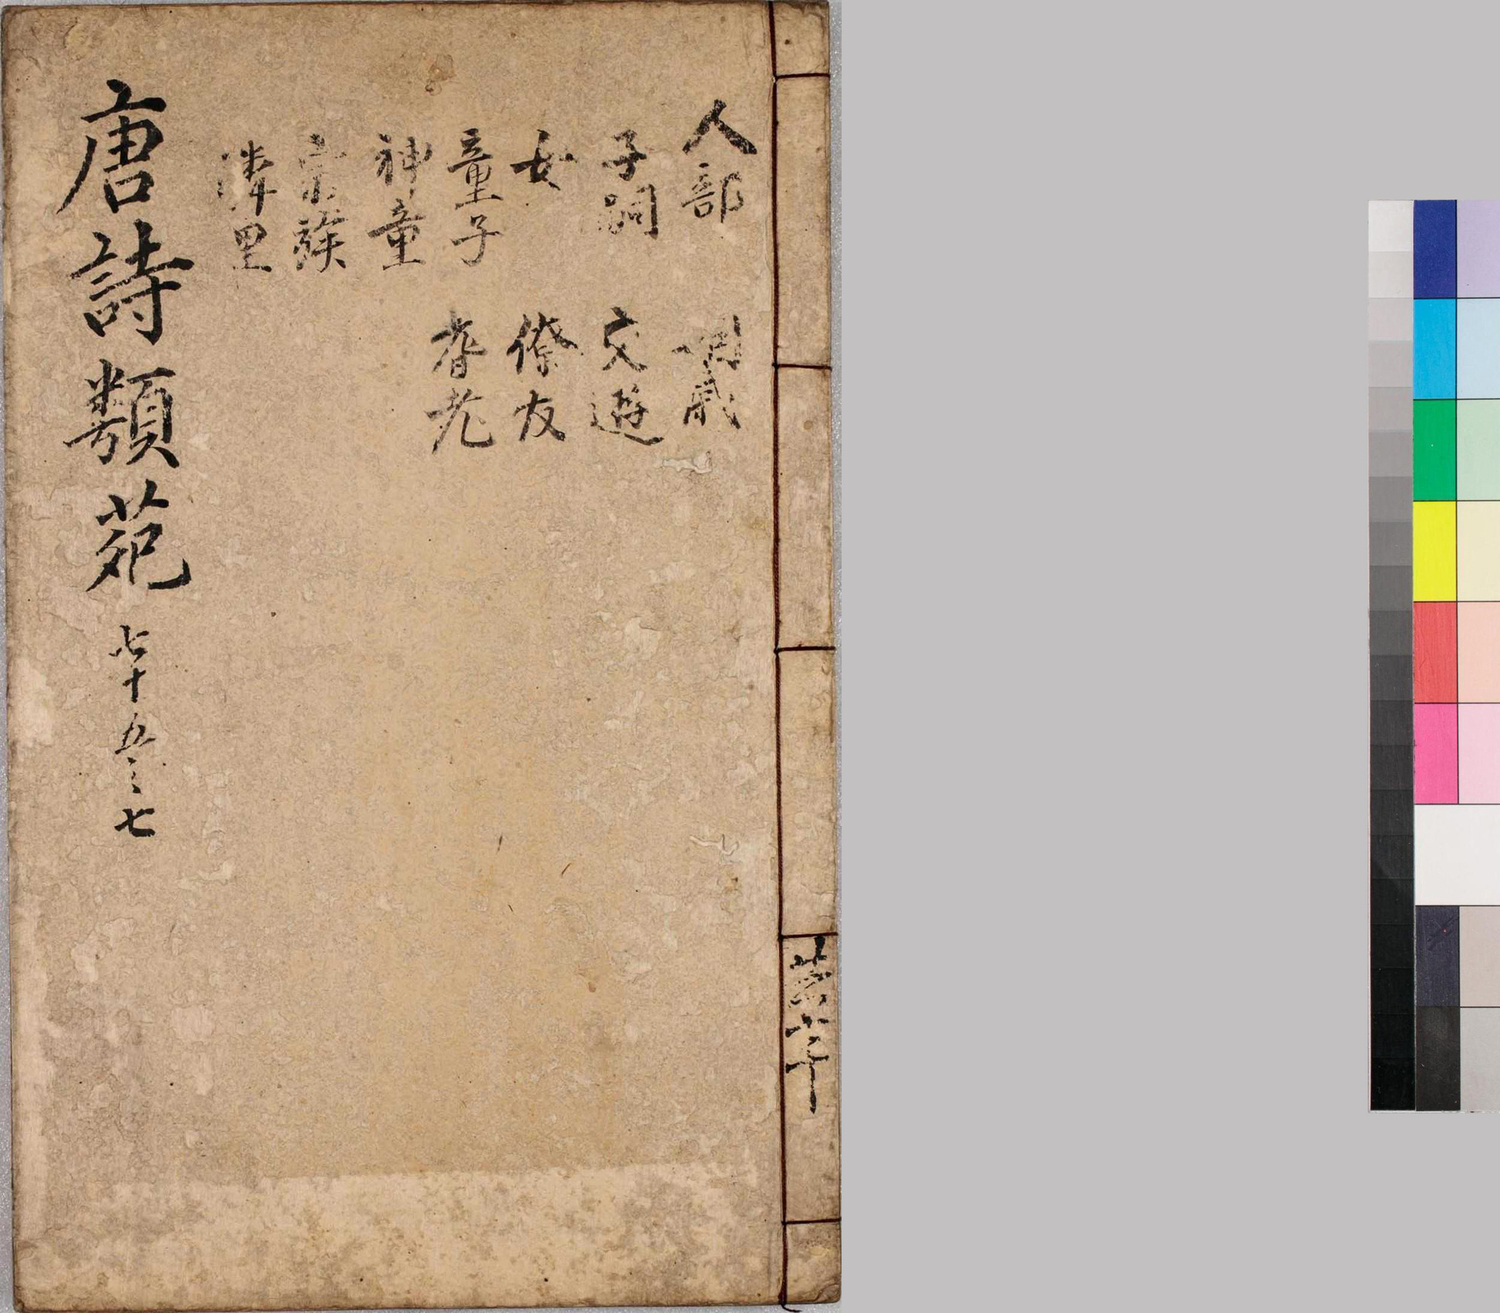 人部
子嗣
女
童子
神童
宗族
隣里
姻戚
交遊
僚友
耆老
唐詩類苑 七十五之七
共六十